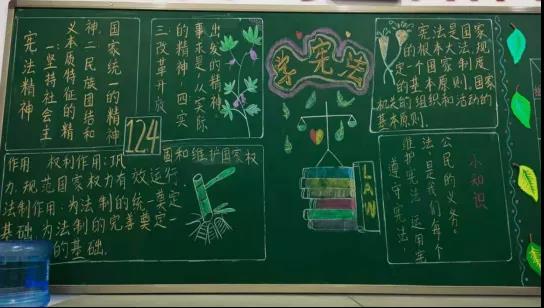 宪法精神
一:坚持社会主
义本质特征的精
神.二民族团结和
国家统一的精神
三.改革开放
的精神.四实
事求是,从实际
出发的精神
124
作用 权利作用:巩固和维护国家权
力,规范国家权力有效运行
法制作用:为法制的统一奠定
基础,为法制的完善奠定一
的基础.
学宪法
LAW
宪法是国家
的基本原则.国家
机关的组织和活动的
基本原则.
小知识
遵守宪法,
维护宪法 运用宪
法是我们每个
公民的义务.